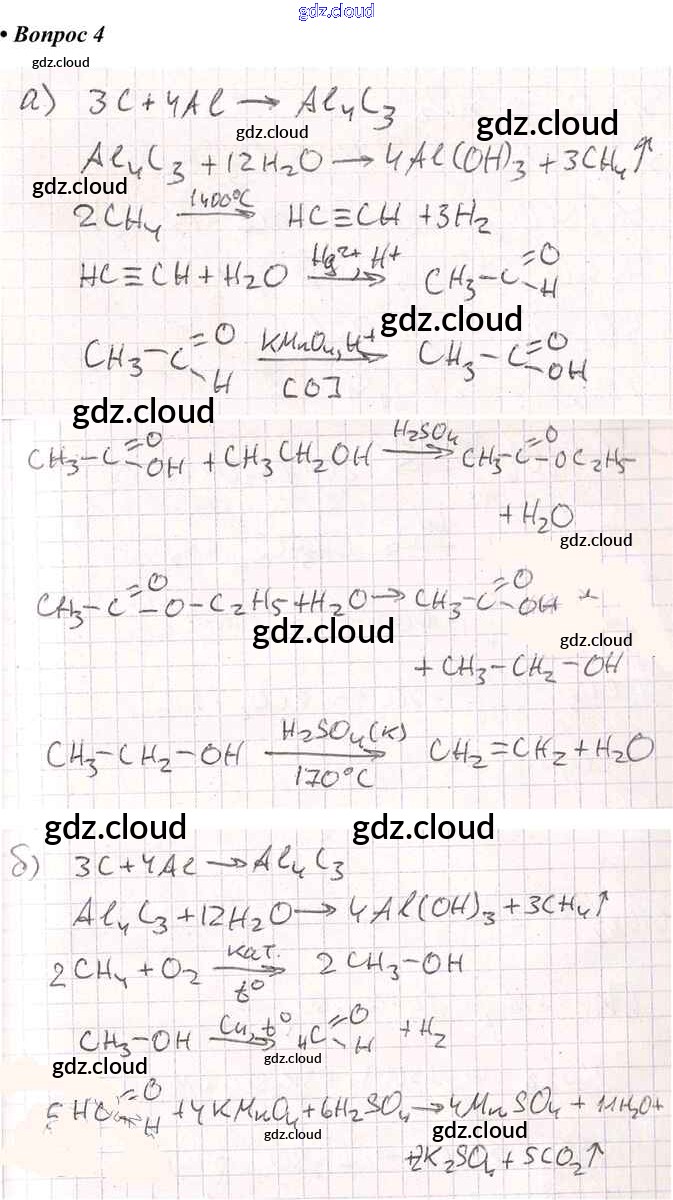 gdz.cloud
• Вопрос 4
gdz.cloud
а) 3C + 4Al → Al₄C₃
gdz.cloud
gdz.cloud
Al₄C₃ + 12H₂O → 4Al(OH)₃ + 3CH₄↑
gdz.cloud
2CH₄ 1400°C → HC≡CH + 3H₂
HC≡CH + H₂O Hg²⁺, H⁺ → CH₃-C=O
-H
gdz.cloud
CH₃-C=O -H KMnO₄, H⁺ → [O] CH₃-C=O -OH
gdz.cloud
CH₃-C=O -OH + CH₃CH₂OH H₂SO₄ → CH₃-C=O -OC₂H₅
+ H₂O
gdz.cloud
CH₃-C=O -O-C₂H₅ + H₂O → CH₃-C=O -OH +
gdz.cloud
gdz.cloud
+ CH₃-CH₂-OH
CH₃-CH₂-OH H₂SO₄(к) → 170°C CH₂=CH₂ + H₂O
gdz.cloud
gdz.cloud
б) 3C + 4Al → Al₄C₃
Al₄C₃ + 12H₂O → 4Al(OH)₃ + 3CH₄↑
2CH₄ + O₂ кат. → t° 2CH₃-OH
CH₃-OH Cu, t° → HC=O -H + H₂
gdz.cloud
gdz.cloud
5HC=O -H + 4KMnO₄ + 6H₂SO₄ → 4MnSO₄ + 11H₂O +
gdz.cloud
gdz.cloud
+2K₂SO₄ + 5CO₂↑